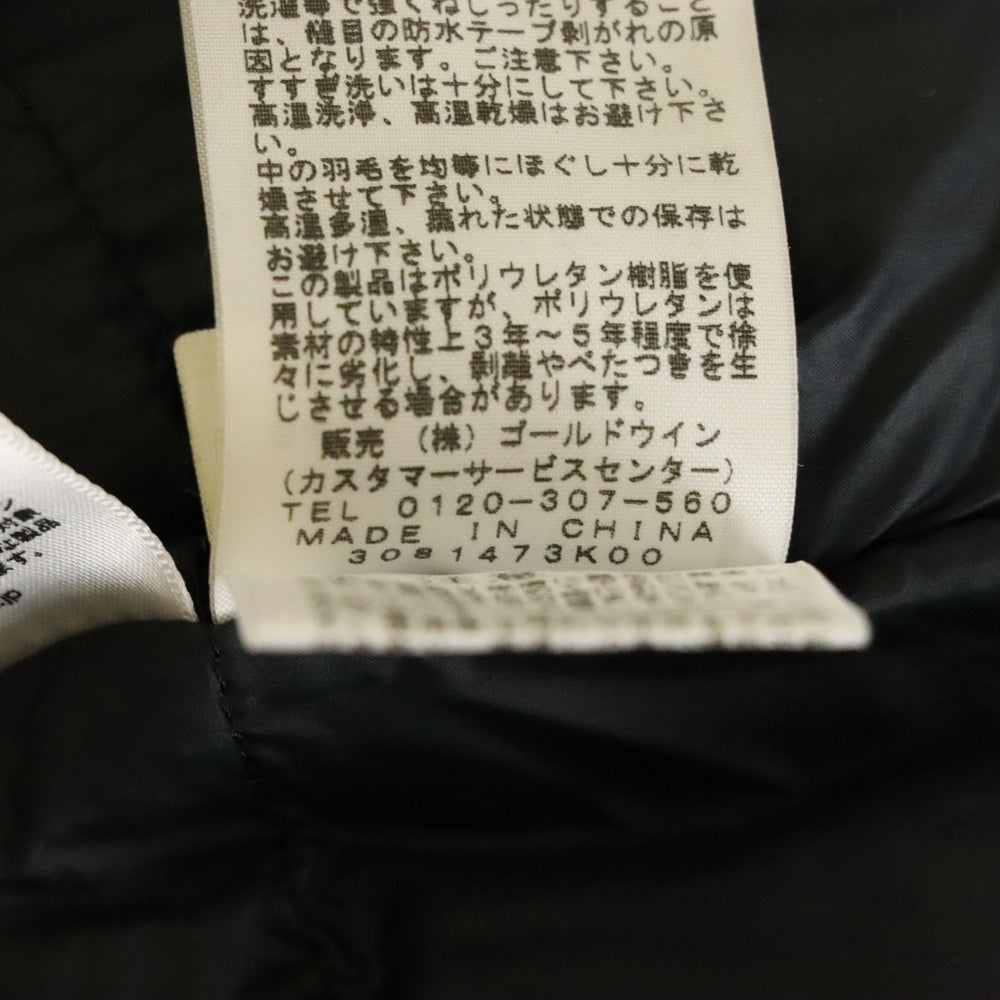 洗濯等で強くねじったりすること
は、縫目の防水テープ剥がれの原
因となります。ご注意下さい。
すすぎ洗いは十分にして下さい。
高温洗浄、高温乾燥はお避け下さ
い。
中の羽毛を均等にほぐし十分に乾
燥させて下さい。
高温多湿、濡れた状態での保存は
お避け下さい。
この製品はポリウレタン樹脂を使
用していますが、ポリウレタンは
素材の特性上3年~5年程度で徐
々に劣化し、剥離やべたつきを生
じさせる場合があります。
販売 (株)ゴールドウイン
(カスタマーサービスセンター)
TEL 0120-307-560
MADE IN CHINA
3081473K00